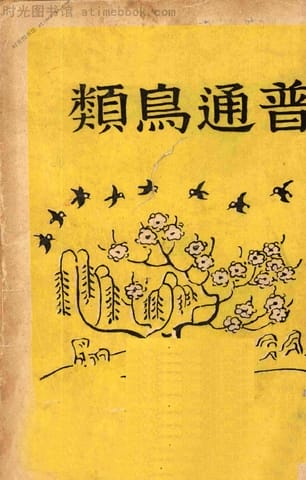 时光图书馆 atimebook.com
普通鳥類